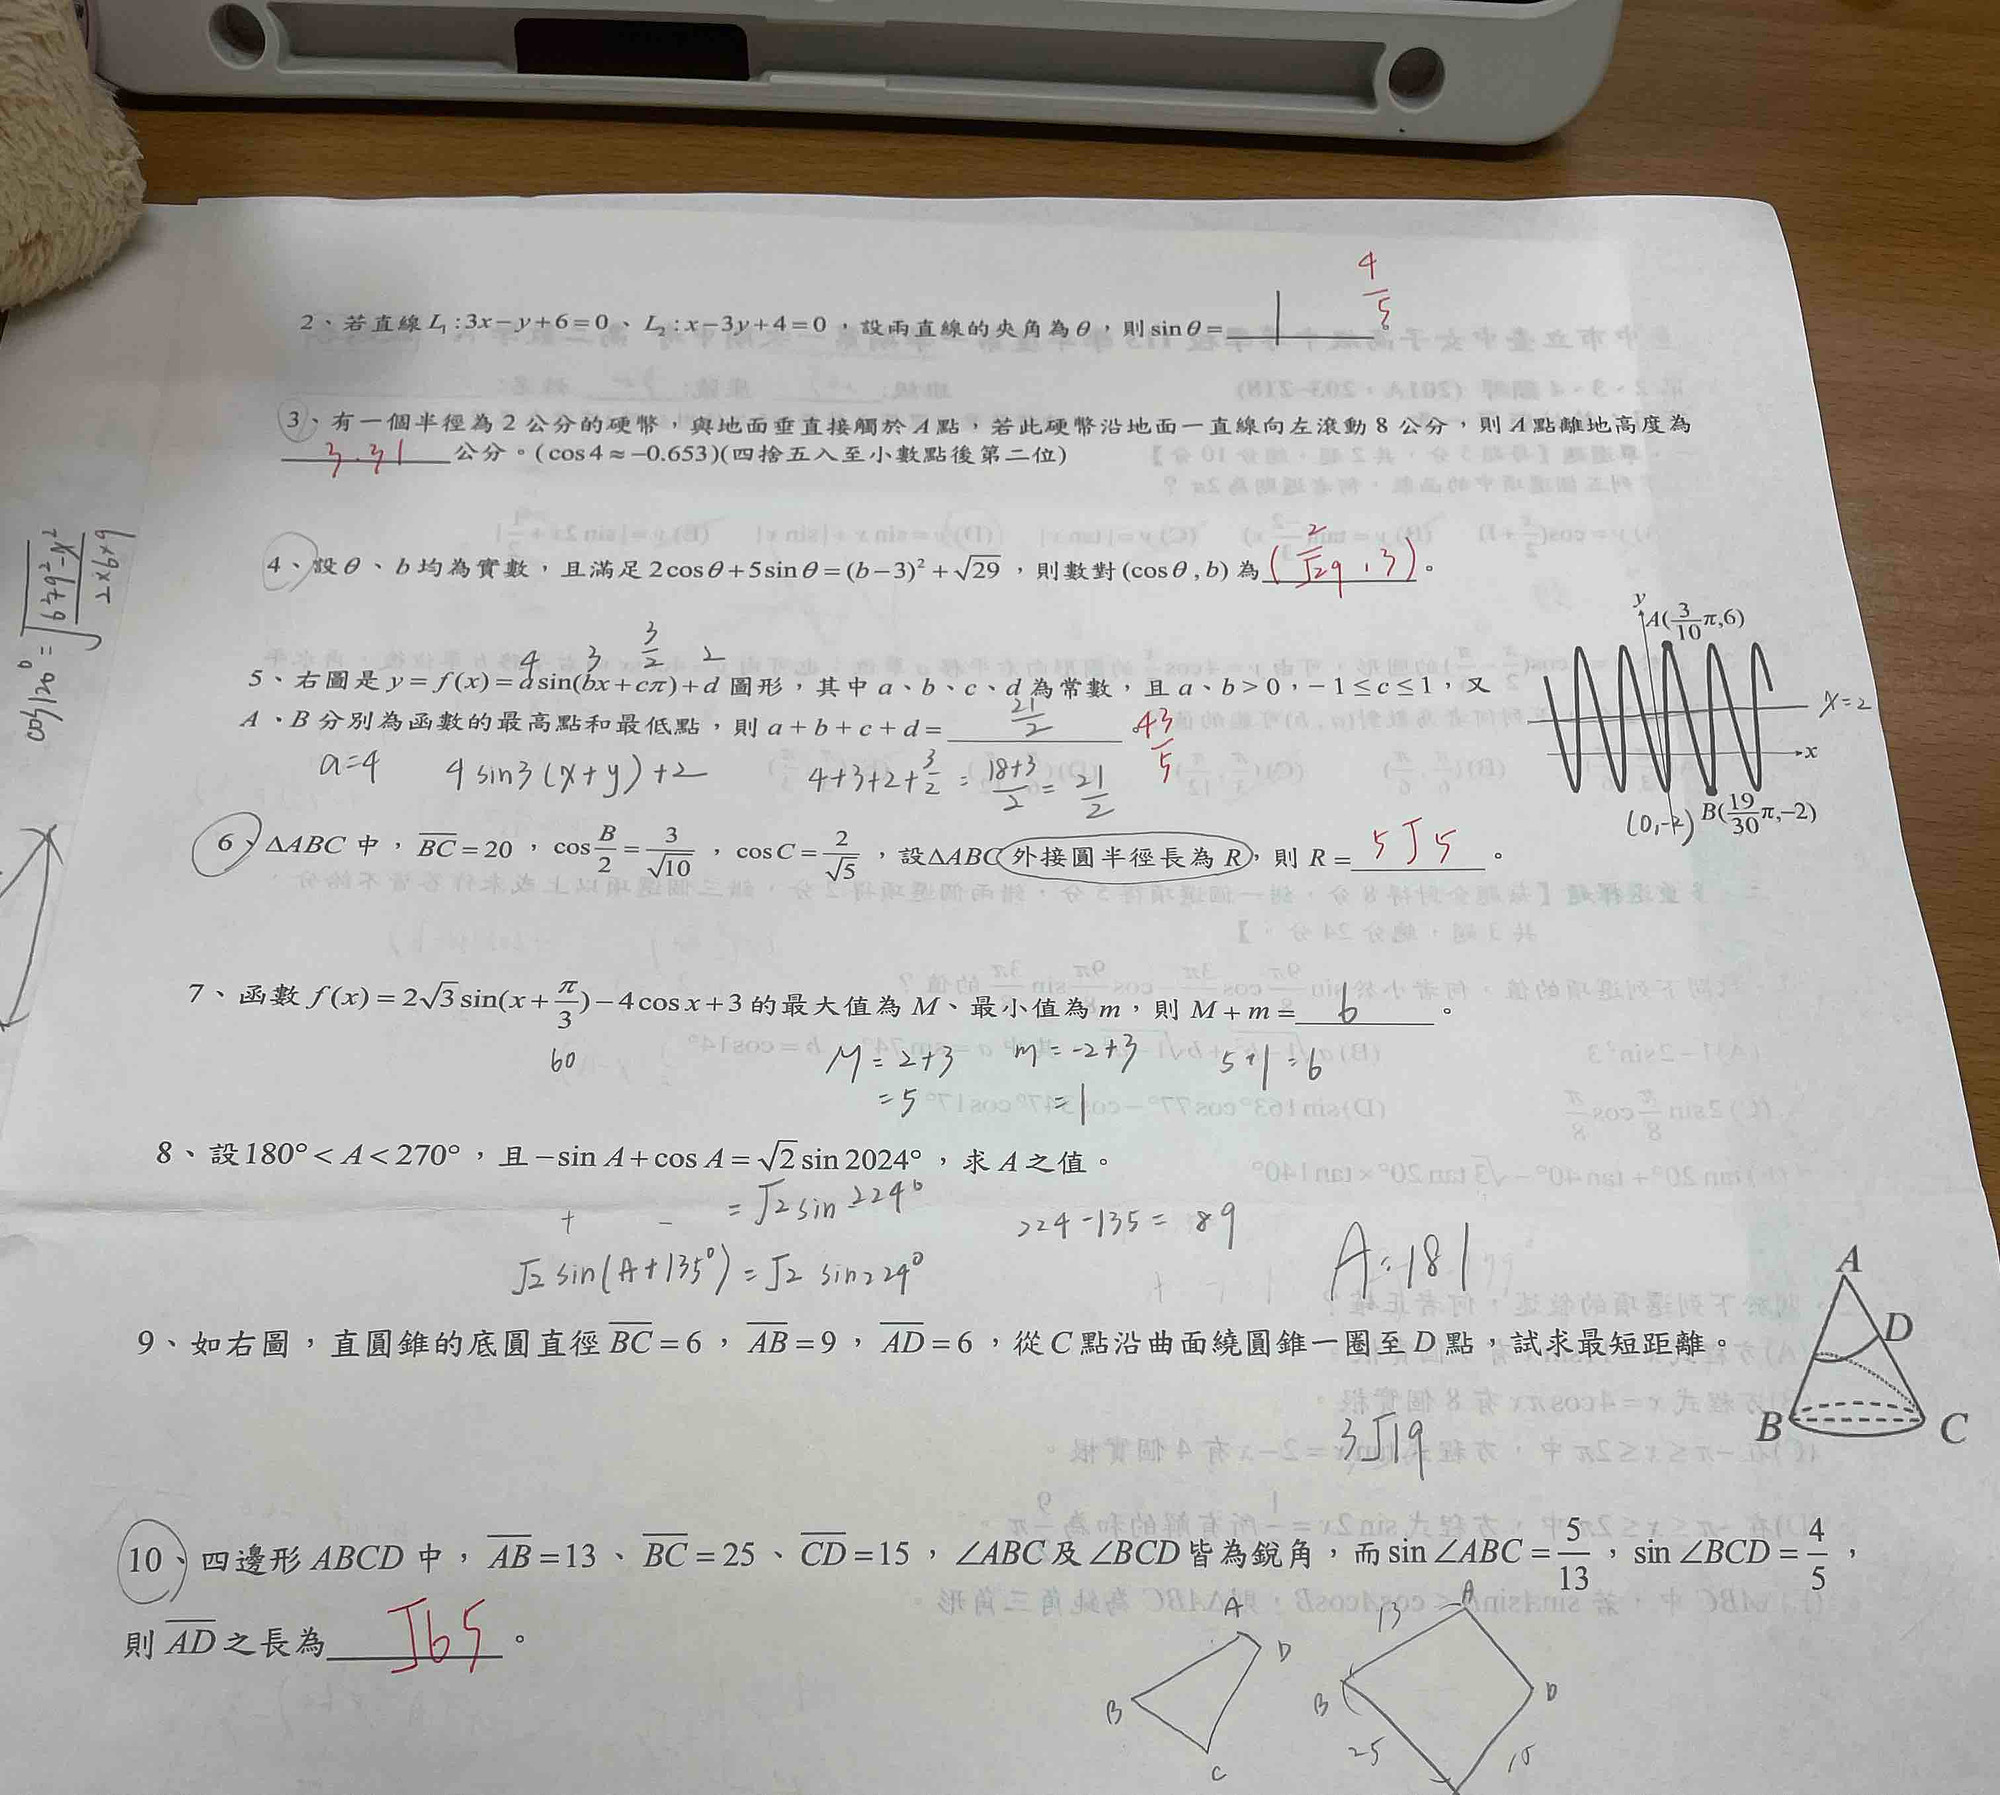 4/5
2、若直線L₁:3x−y+6=0、L₂:x−3y+4=0，設兩直線的夾角為θ，則sinθ=1。
3、有一個半徑為2公分的硬幣，與地面垂直接觸於A點，若此硬幣沿地面一直線向左滾動8公分，則A點離地高度為
3.31公分。(cos4≈−0.653)(四捨五入至小數點後第二位)
4、設θ、b均為實數，且滿足2cosθ+5sinθ=(b−3)²+√29，則數對(cosθ,b)為(2/√29,3)。
cos120°=√(6²+9²−x²)/(2×6×9)
4 3 3/2 2
5、右圖是y=f(x)=a sin(bx+cπ)+d圖形，其中a、b、c、d為常數，且a、b>0，−1≤c≤1，又
A、B分別為函數的最高點和最低點，則a+b+c+d=21/2。43/5
a=4 4sin3(x+y)+2 4+3+2+3/2=(18+3)/2=21/2
y
A(3/10π,6)
x=2
x
(0,-2) B(19/30π,−2)
6、ΔABC中，BC=20，cosB/2=3/√10，cosC=2/√5，設ΔABC外接圓半徑長為R，則R=5√5。
7、函數f(x)=2√3sin(x+π/3)−4cosx+3的最大值為M、最小值為m，則M+m=6。
60 M=2+3 m=-2+3 5+1=6
=5 =1
8、設180°<A<270°，且−sinA+cosA=√2sin2024°，求A之值。
+ − =√2sin224° 224-135=89
√2sin(A+135°)=√2sin224° A=181
9、如右圖，直圓錐的底圓直徑BC=6，AB=9，AD=6，從C點沿曲面繞圓錐一圈至D點，試求最短距離。
3√19
A
D
B C
10、四邊形ABCD中，AB=13、BC=25、CD=15，∠ABC及∠BCD皆為銳角，而sin∠ABC=5/13，sin∠BCD=4/5，
則AD之長為√65。
A D B C
A 13 B D 25 15